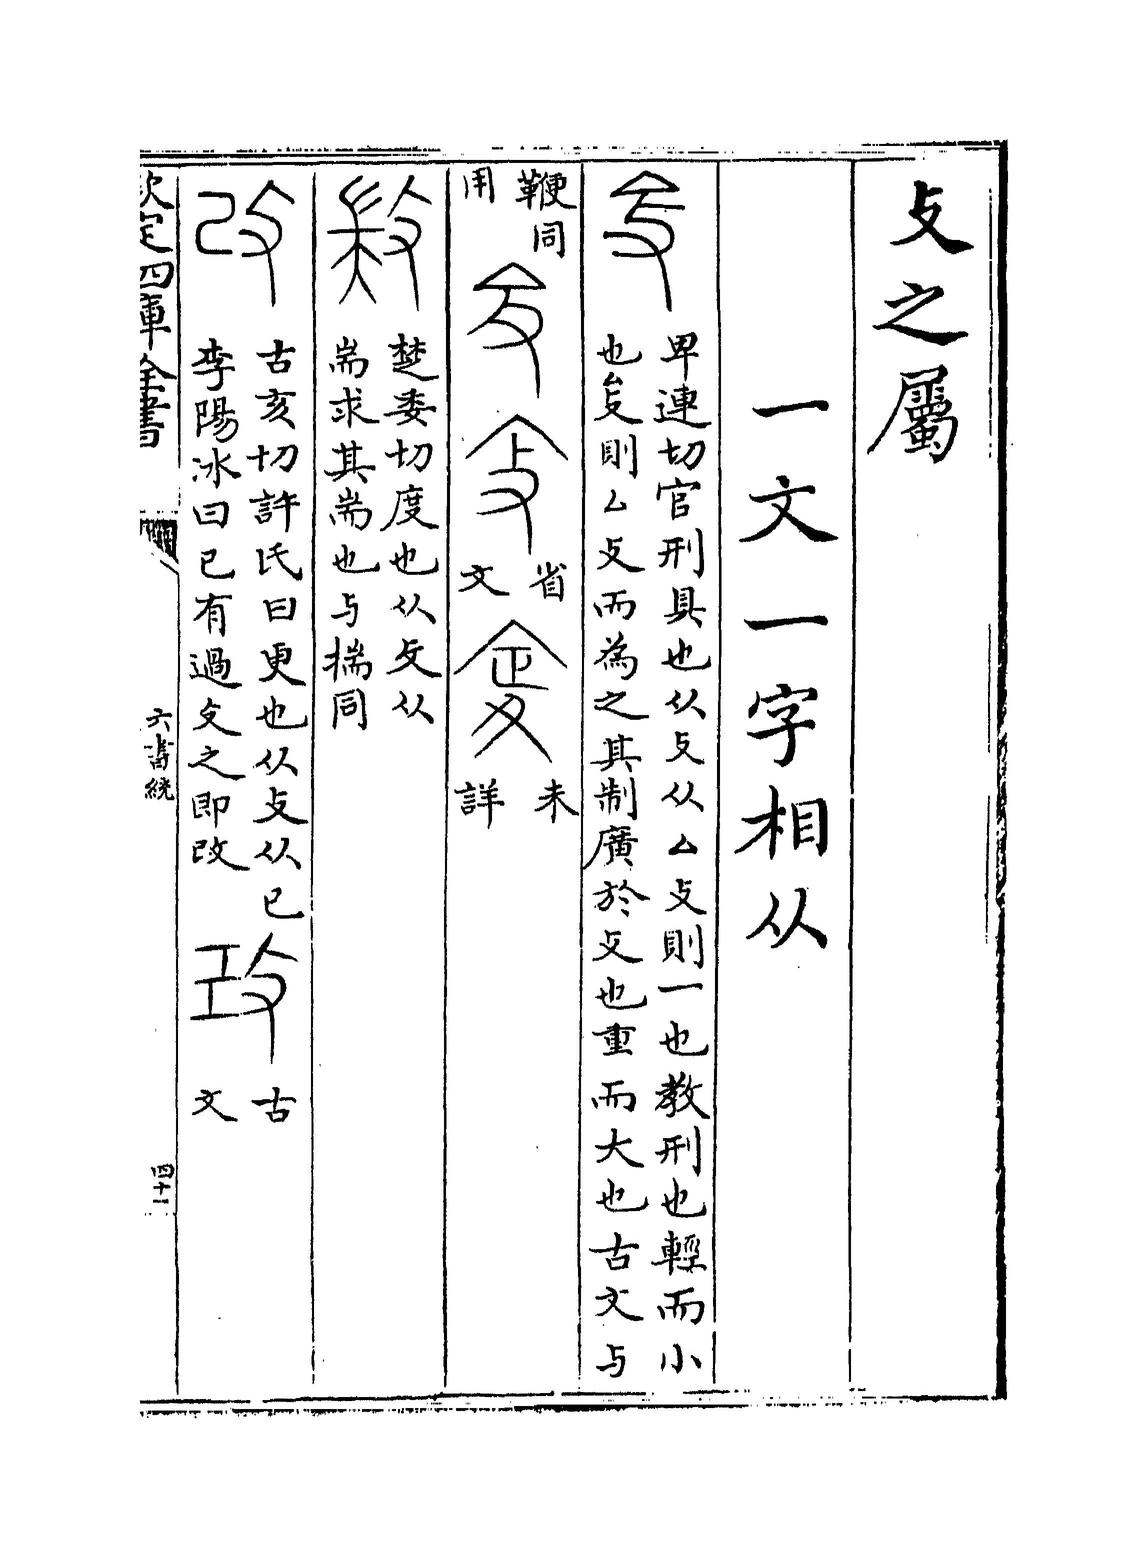 攴之屬
一文一字相从
卑連切官刑具也从攴从亼攴則一也教刑也輕而小
也㪅則亼攴而為之其制廣於攴也重而大也古文与
鞭同
用
省
文
未
詳
楚委切度也从攴从
耑求其耑也与揣同
古亥切許氏曰更也从攴从已
李陽冰曰已有過攴之即改
古
文
欽定四庫全書
六書統
四十一